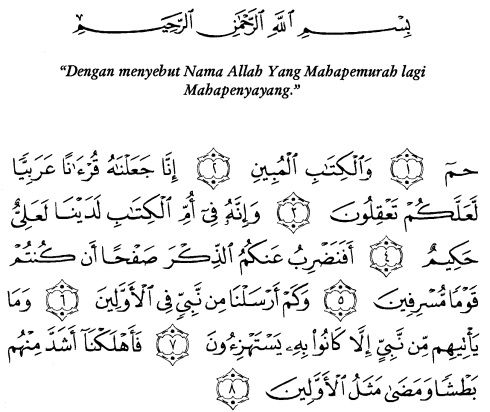 بِسْمِ اللَّهِ الرَّحْمَٰنِ الرَّحِيمِ
“Dengan menyebut Nama Allah Yang Mahapemurah lagi
Mahapenyayang.”
حمٓ ١ وَالْكِتَابِ الْمُبِينِ ٢ إِنَّا جَعَلْنَاهُ قُرْءَانًا عَرَبِيًّا
لَعَلَّكُمْ تَعْقِلُونَ ٣ وَإِنَّهُ فِىٓ أُمِّ الْكِتَابِ لَدَيْنَا لَعَلِىٌّ
حَكِيمٌ ٤ أَفَنَضْرِبُ عَنكُمُ الذِّكْرَ صَفْحًا أَن كُنتُمْ
قَوْمًا مُّسْرِفِينَ ٥ وَكَمْ أَرْسَلْنَا مِن نَّبِيٍّ فِى الْأَوَّلِينَ ٦ وَمَا
يَأْتِيهِم مِّن نَّبِيٍّ إِلَّا كَانُوا۟ بِهِۦ يَسْتَهْزِءُونَ ٧ فَأَهْلَكْنَآ أَشَدَّ مِنْهُم
بَطْشًا وَمَضَىٰ مَثَلُ الْأَوَّلِينَ ٨